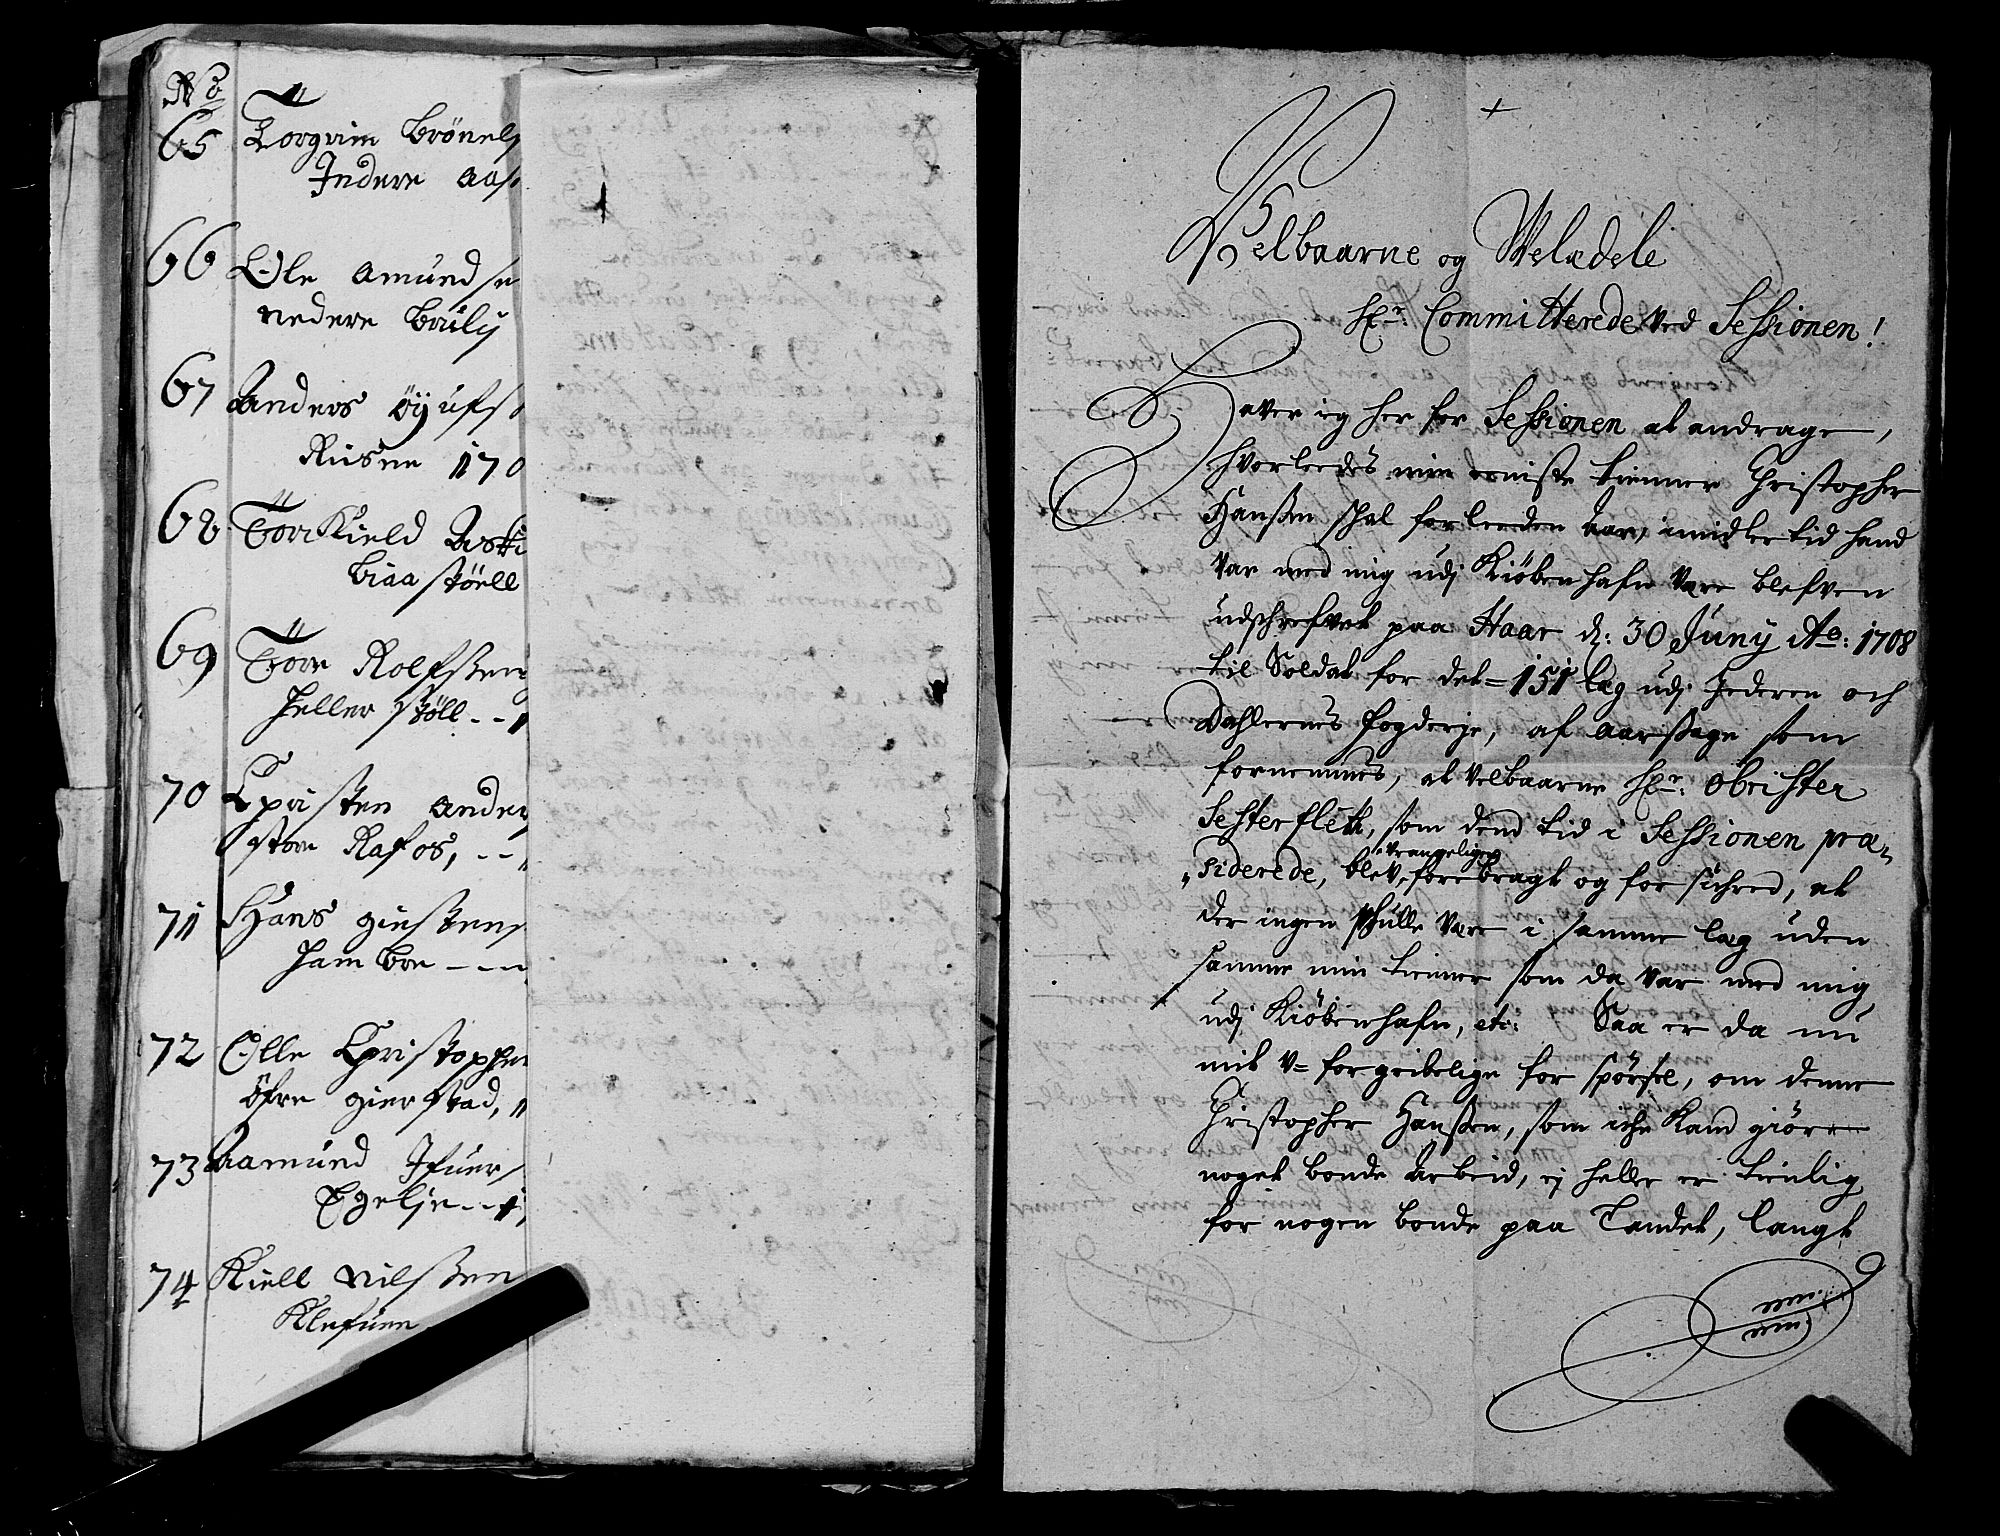 No
65 Torgrim Brönels
Indere Aas
66 Ole Amundse
nedere
67 Anders Öyufs
Riisne 170
68 Torkield Aski
biaa stöell
69 Tore Rolfssen
heller stöll - - 1
70 Christen Ander
store Rafos, - - 1
71 Hans
ham bre - - -
72 Olle Christopher
öfre gierstad, 1
73 Aamund Ifuers
Egelje - - 1
74 Kiell Nilssen
Klefuen
+
Velbaarne og Welædele
Hr: Committerede ved Sessionen!
Haver ieg her for Sessionen at andrage,
hvorleedes min ermste tienner Christopher
Hanssen schal forleeden Aar, imidlertid hand
var med mig udj Kiöbenhafn være blefven
udschrefvet paa Haar d: 30 Juny Ao: 1708
til Soldat for det = 151 læg udj Jederen och
Dahlernes fogderje, af aarssage som
fornemmes, at velbaarne Hr: Obrister
Sesterfleth, som dend tid i Sessionen præ-
siderede, blev vrangeligen forebragt og forsichred, at
der ingen schulle være i samme læg uden
samme min tienner som da var med mig
udj Kiöbenhafn, etc: Saa er da nu
mit v= forgribelige forspörsel, om denne
Christopher Hanssen, som iche kand giöre
noget bonde Arbeid, ej heller er tienlig
for nogen bonde paa Landet, langt